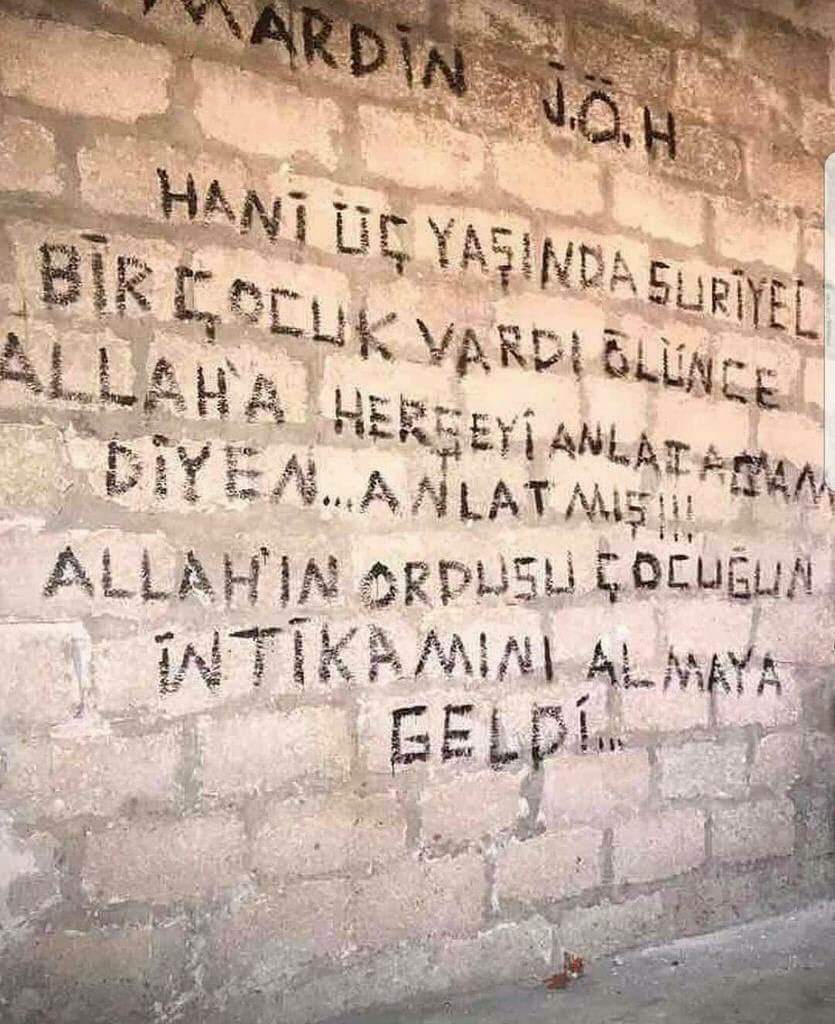 MARDİN J.Ö.H
HANİ ÜÇ YAŞINDA SURİYEL
BİR ÇOCUK VARDI ÖLÜNCE
ALLAH'A HERŞEYİ ANLATACAM
DİYEN...ANLATMIŞ!!!
ALLAH'IN ORDUSU ÇOCUĞUN
İNTİKAMINI ALMAYA
GELDİ...